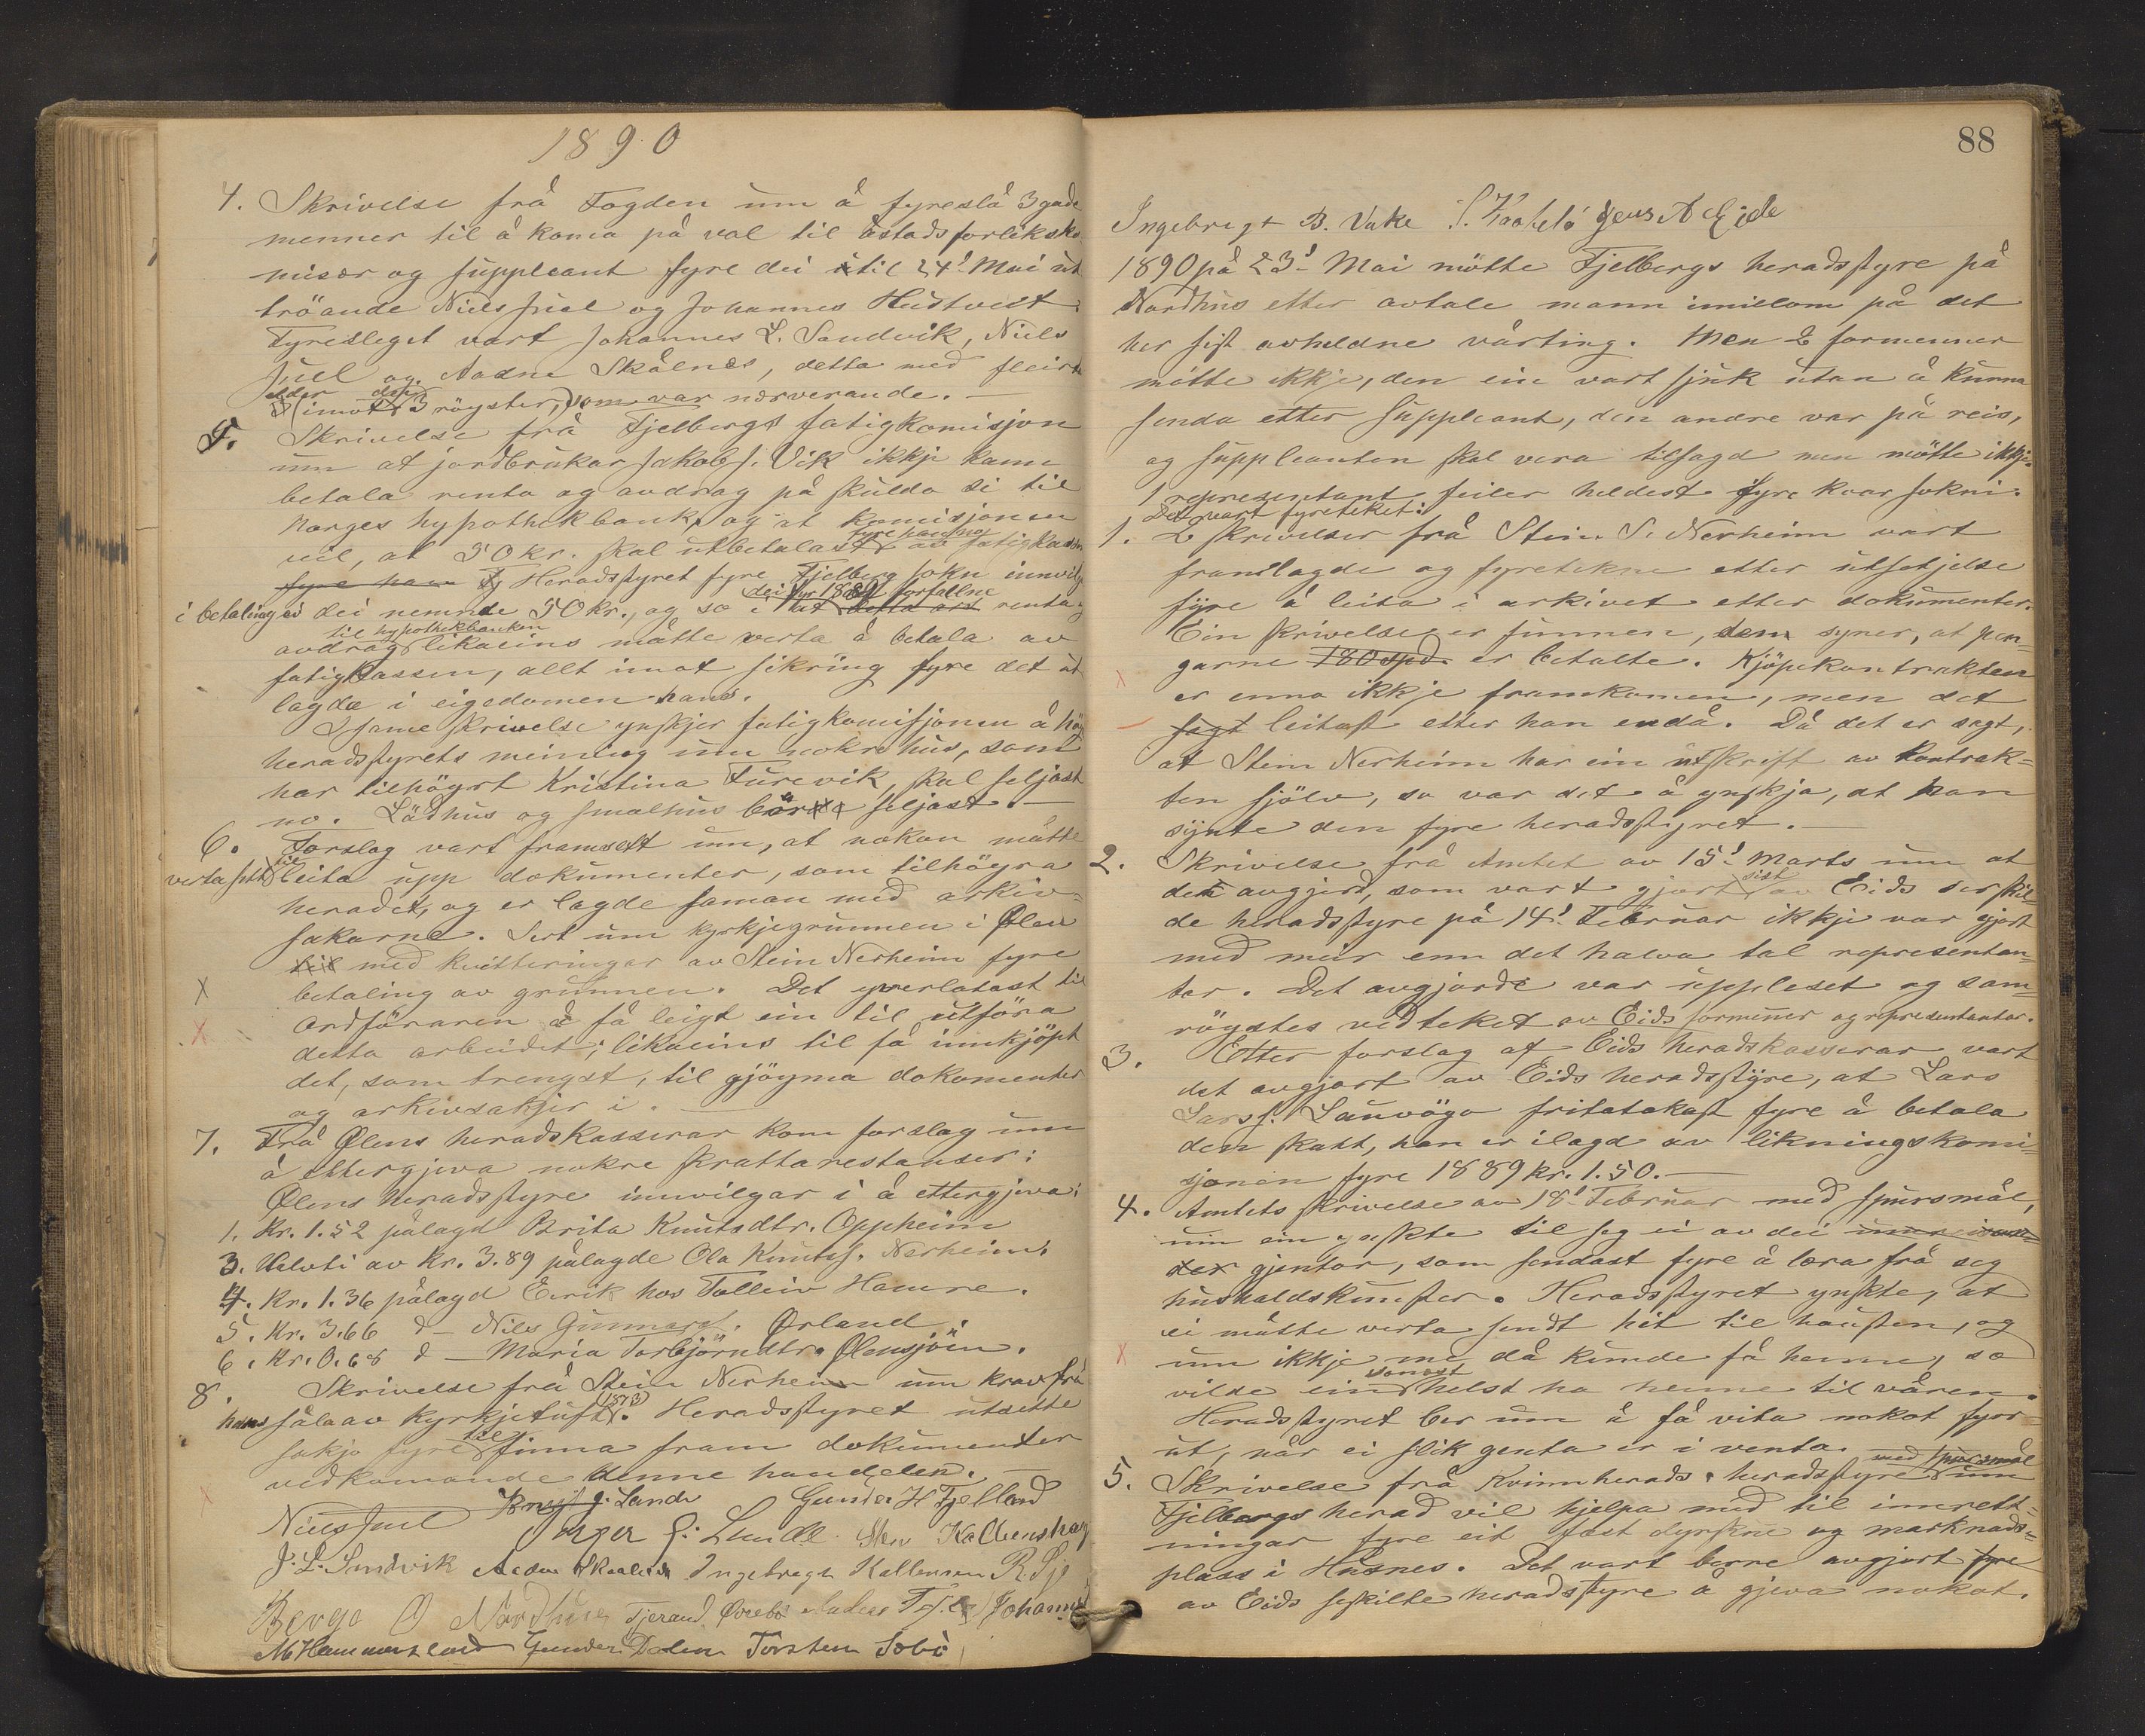 1890
4. Skrivelse frå Fogden um å fyreslå 3 gode
menner til å koma på val til åstadsforliksko-
misær og suppleant fyre dei til 24' Mai ut
tröande Niels Juel og Johannes Hustvedt.
Fyresleget vart Johannes L. Sandvik, Niels
Juel og Aadne Skålnes, detta med fleirta
imot 3 röyster, som var nærverande.
5. Skrivelse frå Fjelbergs fatigkomisjon
um at jordbrukar Jakob J. Vik ikkje kann
betala renta og avdrag på skulda si til
Norges hypothekbank, og at komisjonen
fyre hanna
vil, at 50 kr. skal utbetalast av fatigkassen
fyre hann Heradstyret fyre Fjelberg sokn innvilg
dei fyr 1889 forfallne
i betaling av dei nemnde 50 kr., og so i renta og
til hypothekbanken
avdrag likaeins måtte verta å betala av
fatigkassen, allt imot sikring fyre det ut
lagde i eigedomen hans.
I same skrivelse ynskjer fatigkomisjonen å höy
heradstyrets meining um nokre hus, som
har tilhöyrt Kristina Furevik, skal seljast
no. Lödhus og smalhus bör seljast.
6. Forslag vart framsett um, at nokon måtte
verta sett til leita upp dokumenter, som tilhöyra
heradet, og er lagde saman med arkiv-
sakarne. Sert um kyrkjegrunnen i Ølen
med kvitteringar av Stein Nerheim fyre
betaling av grunnen. Det yverlatast til
Ordföraren å få leigt ein til utföra
detta arbeidet; likaeins til få innkjöpt
det, som trengst, til gjöyma dokumenter
og arkivsakjer i.
7. Frå Ølens heradskasserar kom forslag um
å ettergjeva nokre skattarestanser:
Ølens heradstyre innvilgar i å ettergjeva:
1. Kr. 1.52 pålagd Brita Knutsdtr. Oppheim
3. Halvti av Kr. 3.89 pålagde Ola Knuts. Nerheim.
4. Kr. 1.36 pålagd Eirik hos Tolleiv Hamre.
5. Kr. 3.66 d — Nils Gunnars. Ørland.
6. Kr. 0.68 d — Maria Torbjörndtr. Ølensjöen.
8. Skrivelse frå Stein Nerheim um krav frå
hans sala av kyrkjetuft (1873). Heradstyret utsette
sakja fyre til finna fram dokumenter
vedkomande denne handelen.
Niels Juel Knut J. Lande Gunder H Fjelland
J. Lunde Kaltenshag
J. L. Sandvik Aadne Skaalnes Ingebregt Hallensen
Berge O Nordhuus Tjerand Øvrebö Johannes
M Hammersland Gunder Dalen Torsten Söbö
88
Ingebregt B. Vake Jens A Eide
1890 på 23' Mai mötte Fjelbergs heradstyre på
Nordhus etter avtale mann imillom på det
her sist avheldne vårting. Men 2 formenner
mötte ikkje, den ein vart sjuk utan å kunna
senda etter suppleant, den andre var på reis,
og suppleanten skal vera tilsagd men mötte ikkje.
1 representant feiler heldest fyre kvar sokni.
Det vart fyreteket:
1. 2 skrivelser frå Stein S. Nerheim vart
framlagde og fyretekne etter utsetjelse
fyre å leita i arkivet etter dokumenter.
Ein skrivelse er funnen, som syner, at pen-
garne 180 spd. er betalte. Kjöpekontrakten
er enno ikkje framkomen, men det
sagt leitast etter han endå. Då det er sagt,
at Stein Nerheim har ein utskrift av kontrak-
ten sjölv, so var det å ynskja, at han
synte den fyre heradstyret.
2. Skrivelse frå Amtet av 15' Marts um at
den avgjerd, som vart gjort sist av Eids serskil-
de heradstyre på 14' Februar ikkje var gjort
med meir enn det halva tal representan-
tar. Det avgjorde var uppleset og sam-
röystes vedteket av Eids formenner og representantar.
3. Etter forslag af Eids heradskasserar vart
det avgjort av Eids heradstyre, at Lars
Larss. Lauvöya fritatakast fyre å betala
den skatt, han er ilagd av likningskomi-
sjonen fyre 1889 kr. 1.50.
4. Amtets skrivelse av 18' Februar med spursmål,
um ein ynskte til seg ei av dei
gjentor, som sendast fyre å læra frå seg
hushaldskunster. Heradstyret ynskte, at
ei måtte verta sendt hit til hausten, og
um ikkje me då kunde få henne, so
vilde ein somest helst ha henne til våren.
Heradstyret ber um å få vita nokot fyre
ut, når ei slik genta er i venta.
5. Skrivelse frå Kvinnherads heradstyre med spursmål um
Fjelbergs herad vil hjelpa med til innrett-
ningar fyre eit fast dyrskue og marknads-
plass i Husnes. Det vart berre avgjort fyre
av Eids serskilte heradstyre å gjeva nokot.